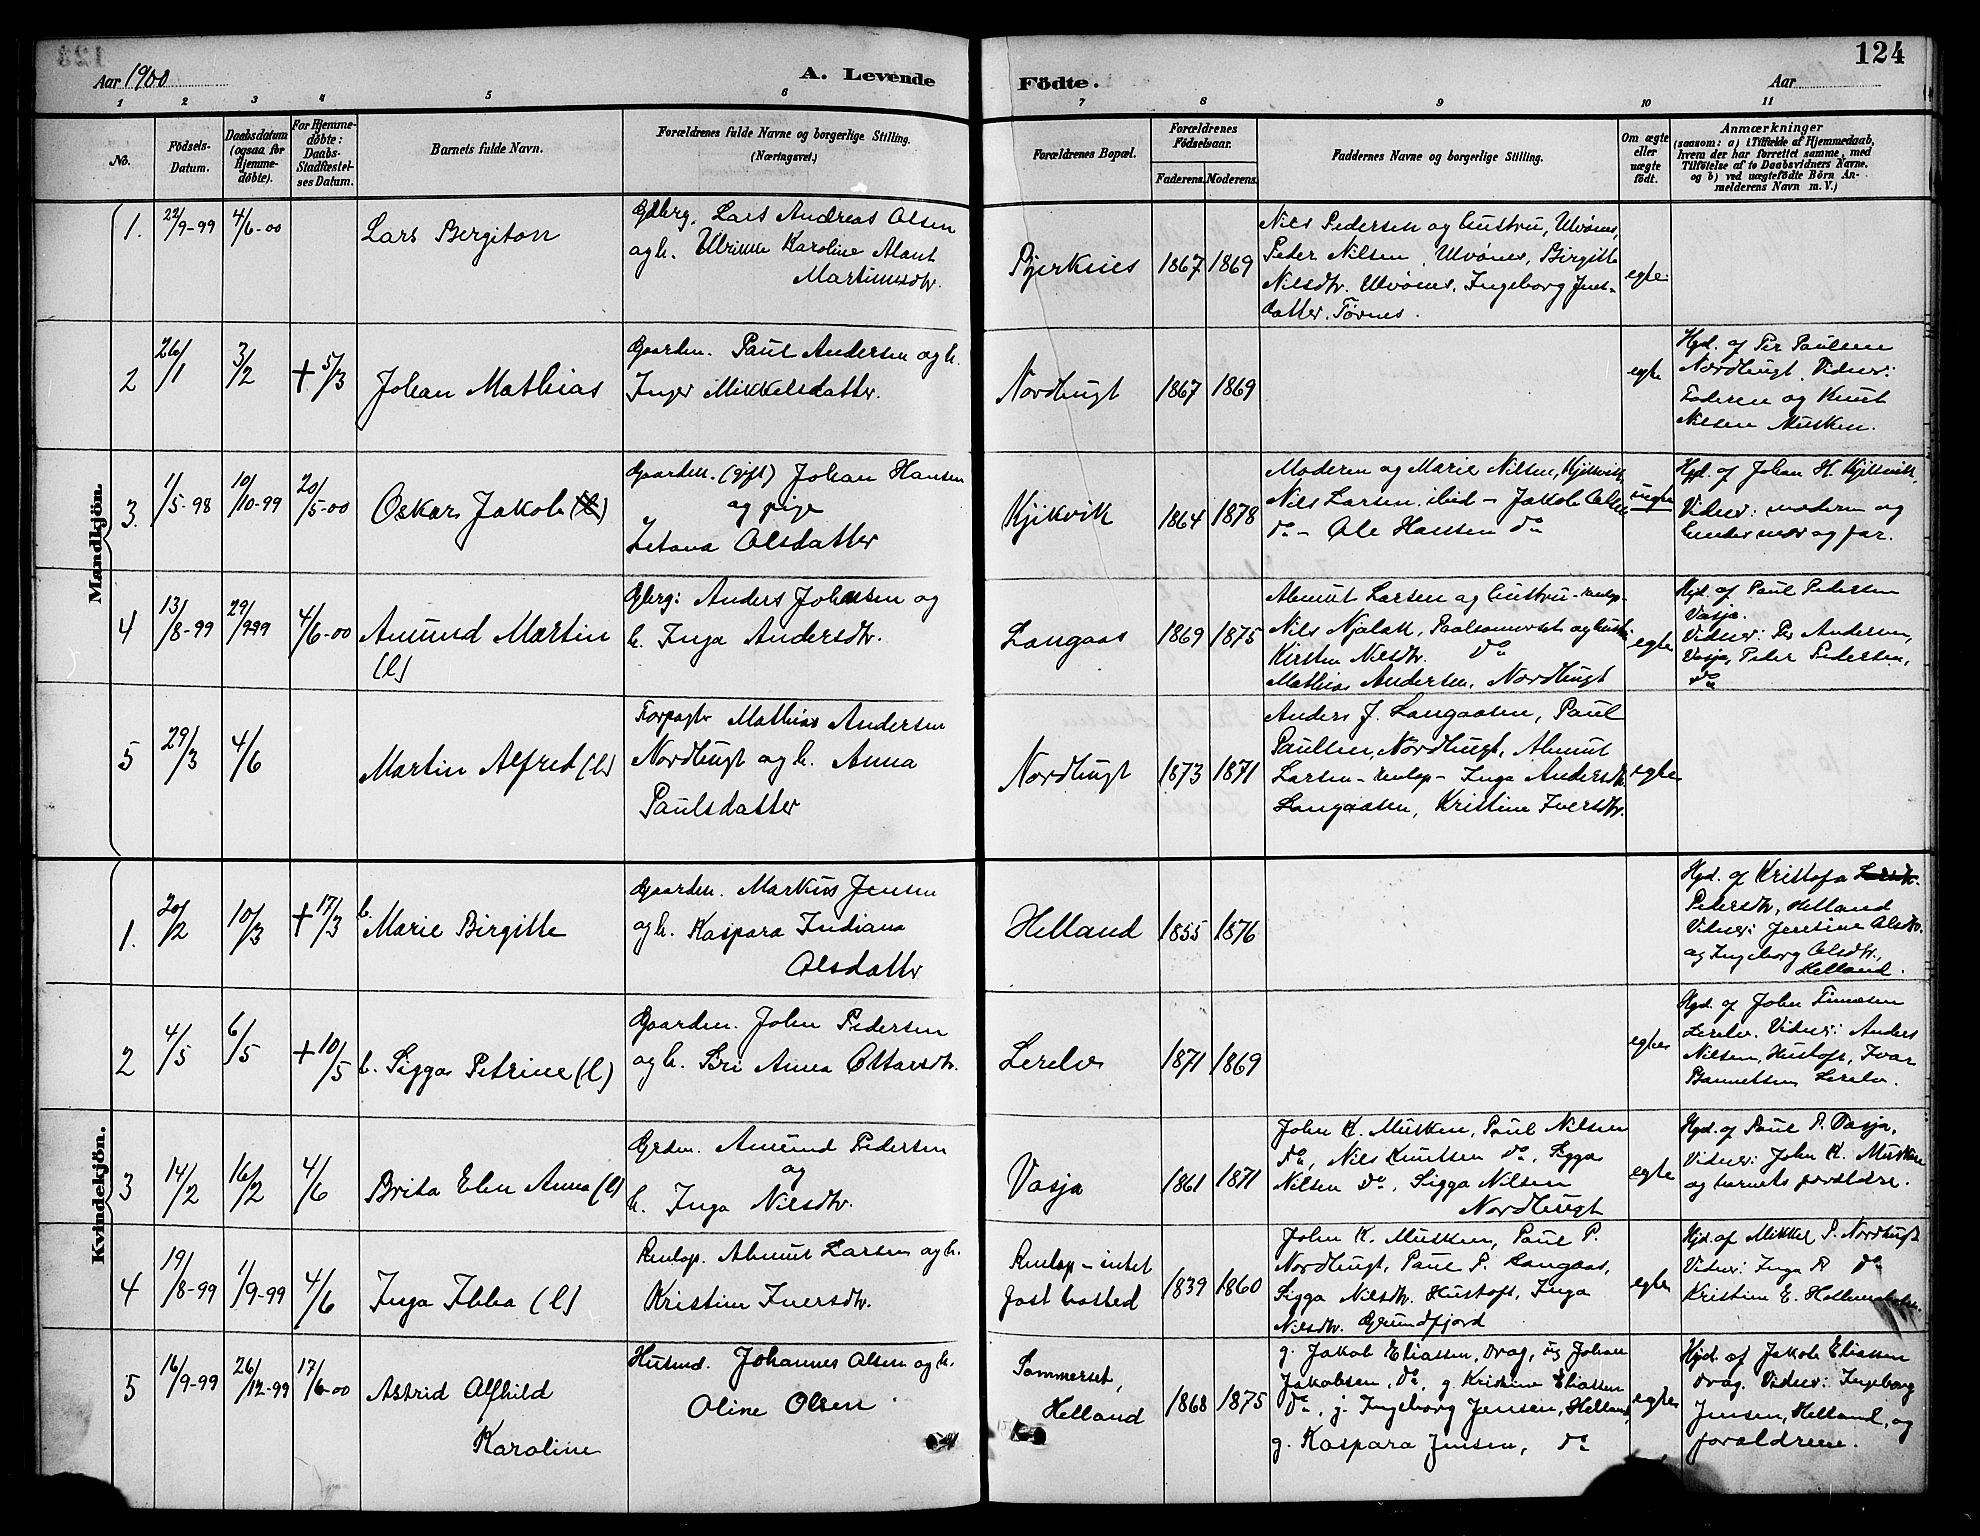 124
Aar 1900
A. Levende Födte.
Aar
1 2 3 4 5 6 7 8 9 10 11
No.
Födsels-
Datum.
Daabsdatum
(ogsaa for
Hjemme-
döbte).
For Hjemme-
döbte:
Daabs-
Stadfæstel-
ses Datum.
Barnets fulde Navn.
Forældrenes fulde Navne og borgerlige Stilling.
(Næringsvei.)
Forældrenes Bopæl.
Forældrenes
Födselsaar.
Faderens. Moderens.
Faddernes Navne og borgerlige Stilling.
Om ægte
eller
uægte
födt.
Anmærkninger
(saasom: a) i Tilfælde af Hjemmedaab,
hvem der har forrettet samme, med
Tilföielse af to Daabsvidners Navne,
og b) ved uægtefödte Börn An-
melderens Navn m. V.)
Mandkjön.
1. 22/9-99 4/6-00
Lars Bergiton
Gdbrg. Lars Andreas Olsen
og h. Ulrikke Karoline
Martinusdtr.
Bjerknes 1867 1869
Nils Pedersen og hustru, Ulvönes,
Peder Nilsen, Ulvönes, Birgitte
Nilsdtr. Ulvönes, Ingeborg Jens-
datter, Törnes.
egte
2 26/1 3/2 + 5/3
Johan Mathias
Gaardm. Paul Andersen og h.
Inger Mikkelsdatter.
Nordbugt 1867 1869
egte
Hjd. af Per Paulsen
Nordbugt. Vidner:
Faderen og Knut
Nilsen Musken.
3. 1/5-98 10/10-99 20/5-00
Oskar Jakob (l)
Gaardm. (gift) Johan Hansen
og pige
Olsdatter
Kjikvik 1864 1878
Moderen og Marie Nilsen, Kjikvik
Nils Larsen, ibid - Jakob Olsen
do - Ole Hansen do
uegte
Hjd. af Johan H. Kjikvik,
Vidner: moderen og
hendes mor og far.
4 13/8-99 29/9-99 4/6-00
Amund Martin
(l)
Gbrg: Anders Johnsen og
h. Inga Andersdtr.
Langaas 1869 1875
Ahmut Larsen og hustru - renlap-
Nils Njalak, og hustru
Kirsten Nilsdtr. do
Mathias Andersen, Nordbugt
egte
Hjd. af Paul Pedersen
Vasja.
Vidner: Per Andersen,
Vasja, Peder Pedersen,
do
5 29/3 4/6
Martin Alfred (l)
Forpagtr Mathias Andersen
Nordbugt og h. Anna
Paulsdatter
Nordbugt 1873 1871
Anders J. Langaasen, Paul
Paulsen, Nordbugt, Ahmut
Larsen - renlap - Inga Andersdtr.
Langaasen, Kristine Iversdtr.
egte
Kvindekjön.
1. 20/2 10/3 + 17/3
b. Marie Birgitte
Gaardm. Markus Jensen
og h. Kaspara Indiana
Olsdatter
Helland 1855 1876
Hjd. af Kristofa
Pedersdtr, Helland
Vidner: Justine Olsdtr.
og Ingeborg Olsdtr.,
Helland.
2 4/5 6/5 + 10/5
b. Sigga Petrine (l)
Gaardm. John Pedersen
og h. Siri Anna Ottarsdtr.
Lerelv 1871 1869
egte
Hjd. af John Simonsen
Lerelv. Vidner: Anders
Nilsen, Hustoft, Ivar
Lerelv.
3 14/2 16/2 4/6
Brita Elen Anna (l)
Grdm. Amund Pedersen
og
h. Inga Nilsdtr.
Vasja 1861 1871
John K. Musken, Paul Nilsen
do, Nils Knutsen do, Sigga
Nilsen do, Sigga Nilsen
Nordbugt
egte
Hjd. af Paul P. Vasja,
Vidner: John K. Musken
og barnets forældre.
4 19/8-99 1/9-99 4/6
Inga Ibba (l)
Renlap. Ahmut Larsen og h.
Kristine Iversdtr.
Renlap - intet
fast bosted 1839 1860
John K. Musken, Paul P.
Nordbugt, Paul P. Langaas,
Sigga Nilsdtr. Hustoft, Inga
Nilsdtr. Grundfjord
egte
Hjd. af Mikkel P. Nordbugt
Vidner: Inga P. do
Kristine E.
5 16/9-99 26/12-99 17/6-00
Astrid Alfhild
Karoline
Husmd. Johannes Olsen og h.
Oline Olsen.
Sommerset,
Helland 1868 1875
g. Jakob Eliassen, Drag, ug Johan
Jakobsen, do, g Kristine Eliassen
do, g. Ingeborg Jensen, Helland,
g. Kaspara Jensen, do
egte
Hjd. af Jakob Eliassen
Drag. Vidner: Ingeborg
Jensen, Helland, og
forældrene.